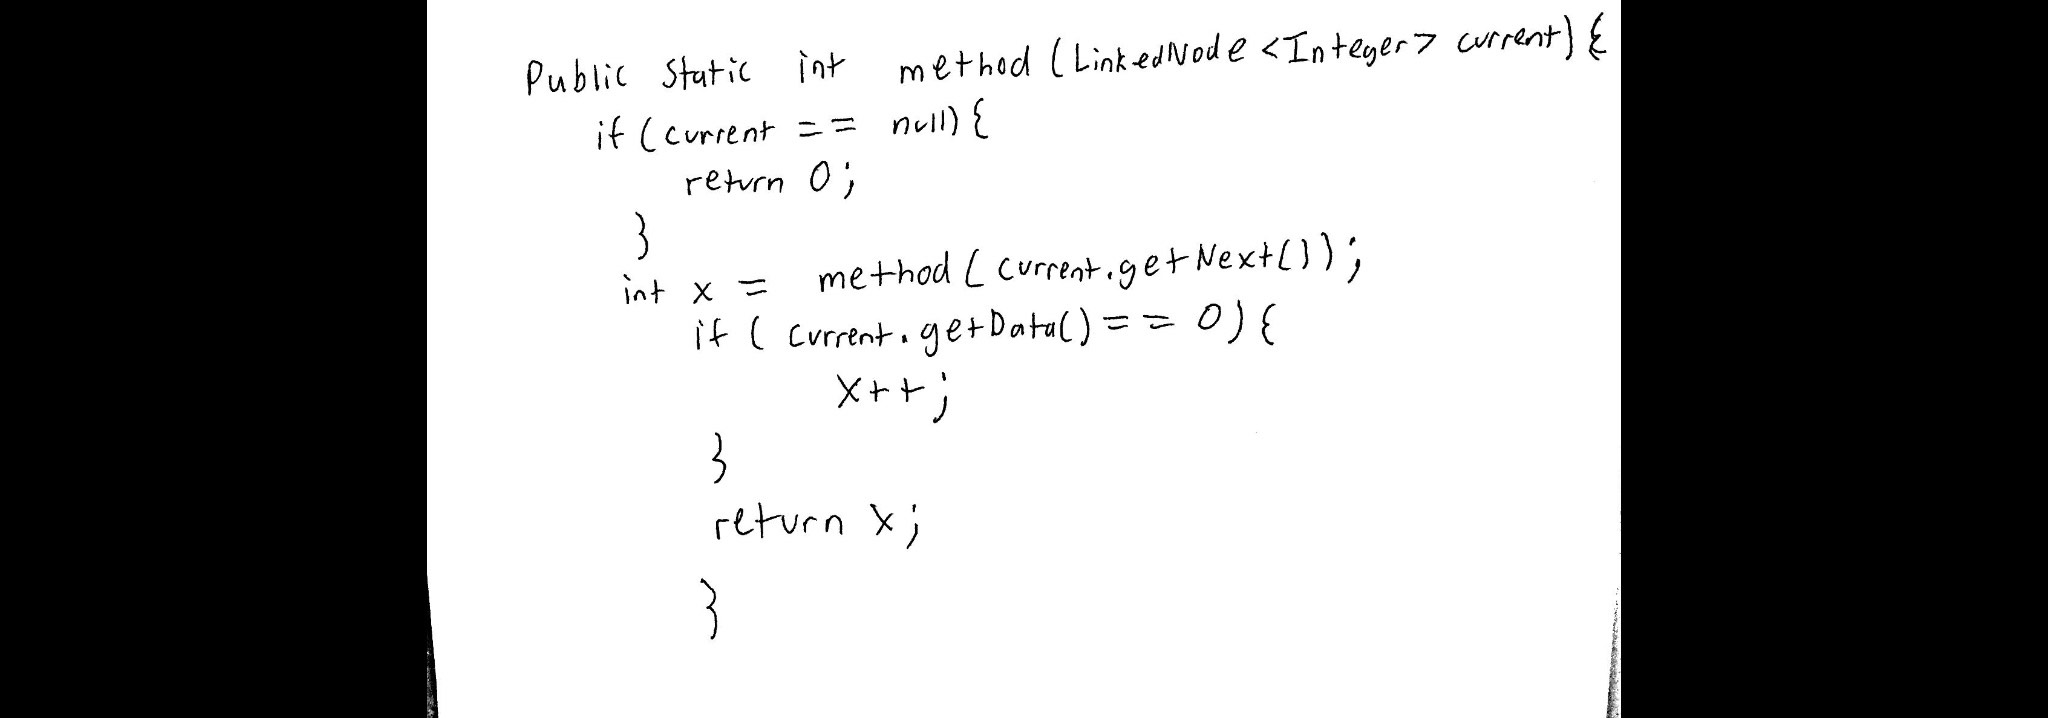 Public Static int method (LinkedNode <Integer> current) {
if (current == null) {
return 0;
}
int x = method (current.getNext());
if ( current.getData() == 0) {
x++;
}
return x;
}